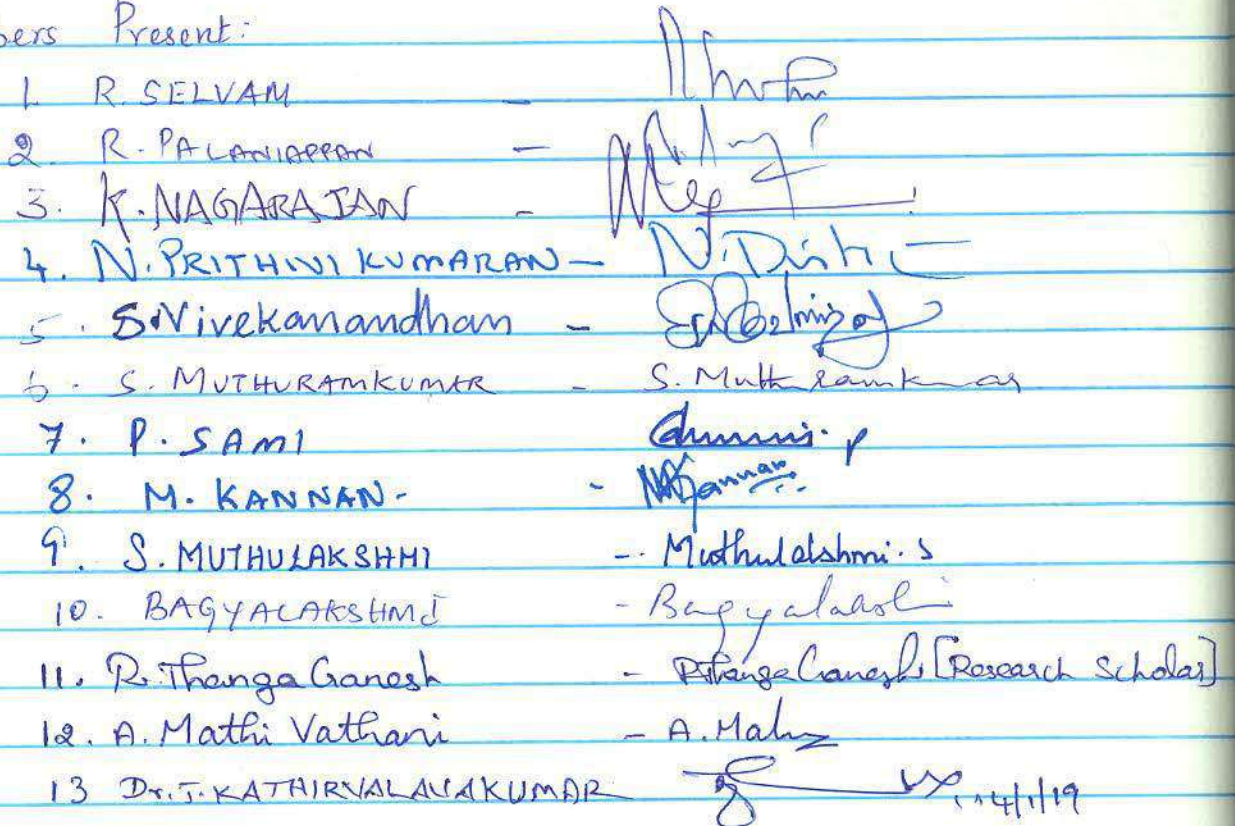 bers Present:
1. R. SELVAM -
2. R. PALANIAPPAN -
3. K. NAGARAJAN -
4. N. PRITHIVI KUMARAN -
5. S. Vivekanandhan -
6. S. MUTHURAMKUMAR - S. Muthuramkumar
7. P. SAMI
8. M. KANNAN. - M. Kannan
9. S. MUTHULAKSHMI -. Muthulakshmi. S
10. BAGYALAKSHMI - Bagyalakshmi
11. R. Thanga Ganesh - R. Thanga Ganesh [Research Scholar]
12. A. Mathi Vathani - A.
13 Dr. J. KATHIRVALAVAKUMAR 4/1/19